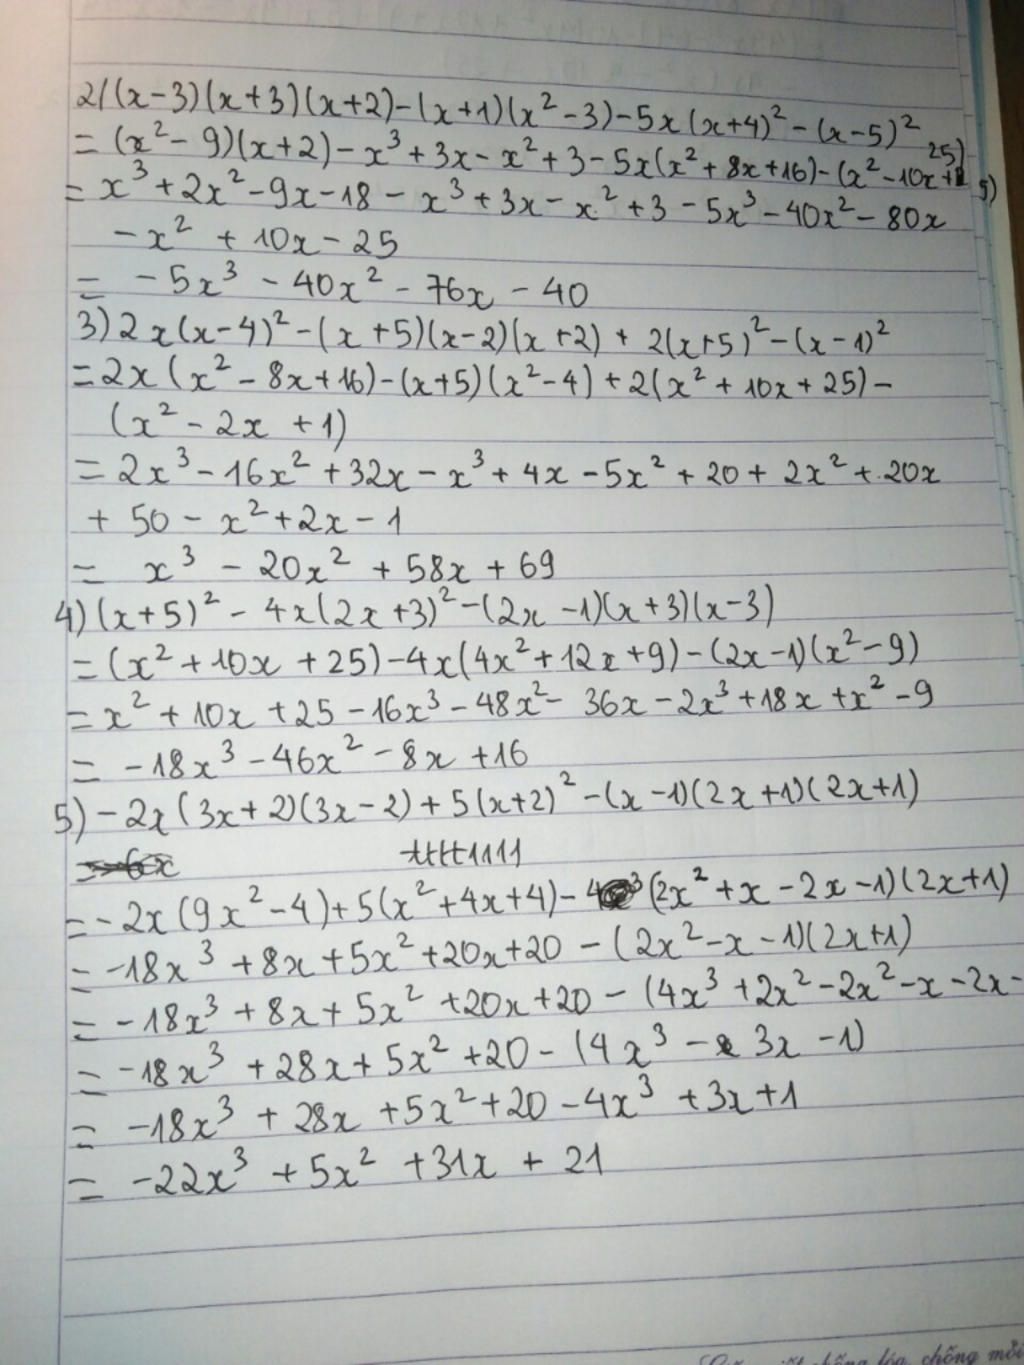 2/(x-3)(x+3)(x+2)-(x+1)(x²-3)-5x(x+4)²-(x-5)²
= (x²-9)(x+2)-x³+3x-x²+3-5x(x²+8x+16)-(x²-10x+25)
= x³+2x²-9x-18-x³+3x-x²+3-5x³-40x²-80x
-x²+10x-25
= -5x³-40x²-76x-40
3) 2x(x-4)²-(x+5)(x-2)(x+2)+2(x+5)²-(x-1)²
= 2x(x²-8x+16)-(x+5)(x²-4)+2(x²+10x+25)-
(x²-2x+1)
= 2x³-16x²+32x-x³+4x-5x²+20+2x²+20x
+50-x²+2x-1
= x³-20x²+58x+69
4) (x+5)²-4x(2x+3)²-(2x-1)(x+3)(x-3)
= (x²+10x+25)-4x(4x²+12x+9)-(2x-1)(x²-9)
= x²+10x+25-16x³-48x²-36x-2x³+18x+x²-9
= -18x³-46x²-8x+16
5) -2x(3x+2)(3x-2)+5(x+2)²-(x-1)(2x+1)(2x+1)
= -2x(9x²-4)+5(x²+4x+4)-(2x²+x-2x-1)(2x+1)
= -18x³+8x+5x²+20x+20-(2x²-x-1)(2x+1)
= -18x³+8x+5x²+20x+20-(4x³+2x²-2x²-x-2x-
= -18x³+28x+5x²+20-(4x³-3x-1)
= -18x³+28x+5x²+20-4x³+3x+1
= -22x³+5x²+31x+21
chống